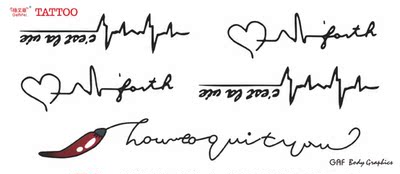 TATTOO
c'est la vie
forth
forth
c'est la vie
how to quit you
GAF Body Graphics